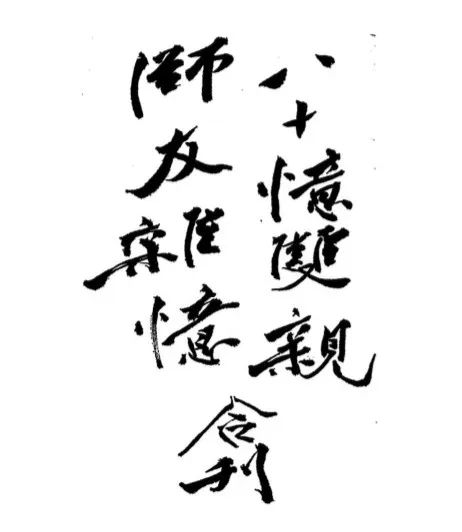 八十憶雙親
師友雜憶
合刊